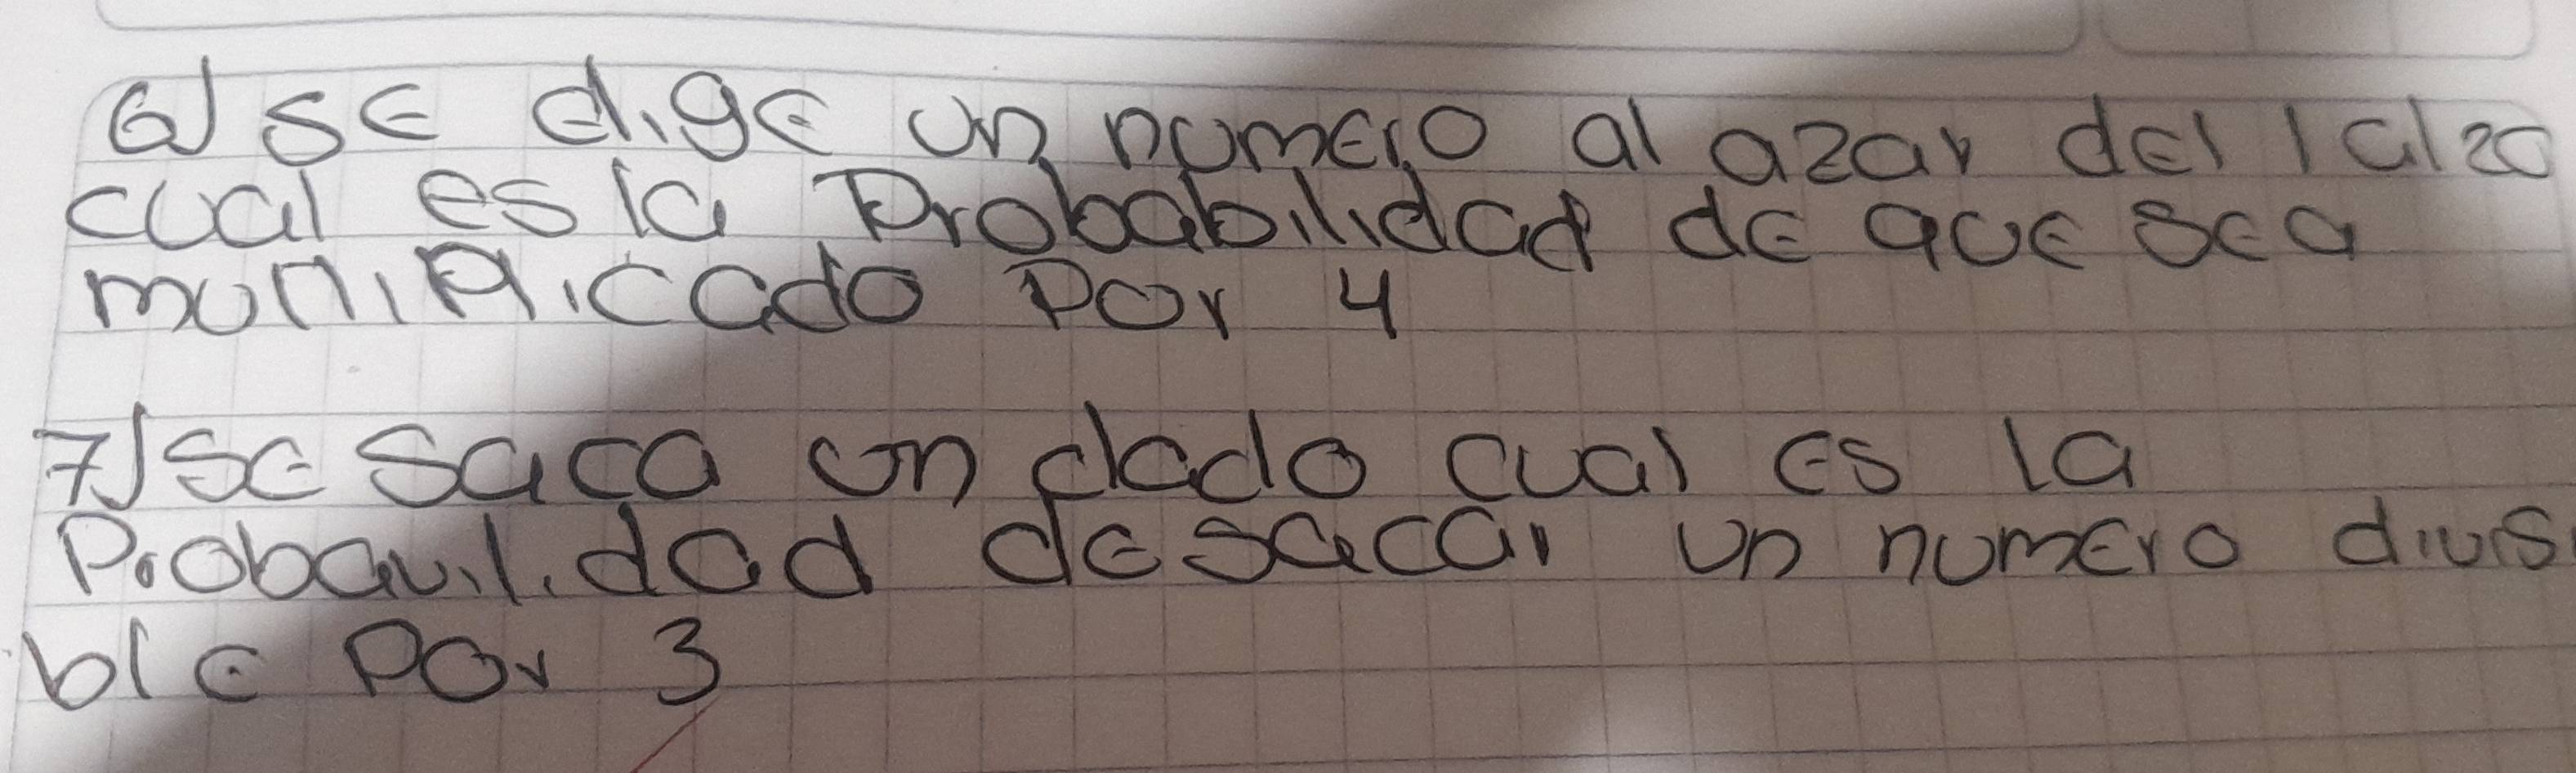 6) se elige un numero al azar del 1 al 20
cual es la Probabilidad de que sea
multiplicado por 4
7) se saca un dado cual es la
Probavilidad de sacar un numero divisi
ble por 3